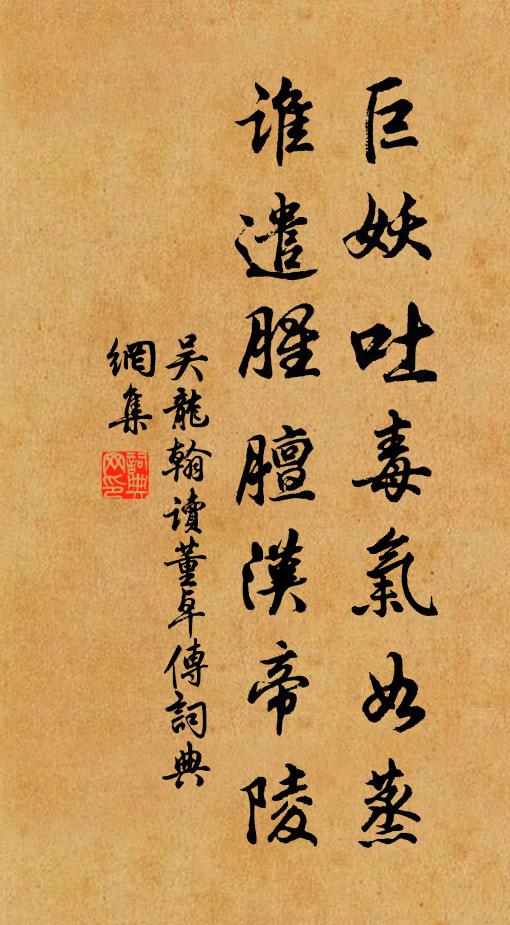 巨妖吐毒氣如蒸
誰遣腥膻漢帝陵
吳龍翰讀董卓傳詞典
網集
詞典
网印